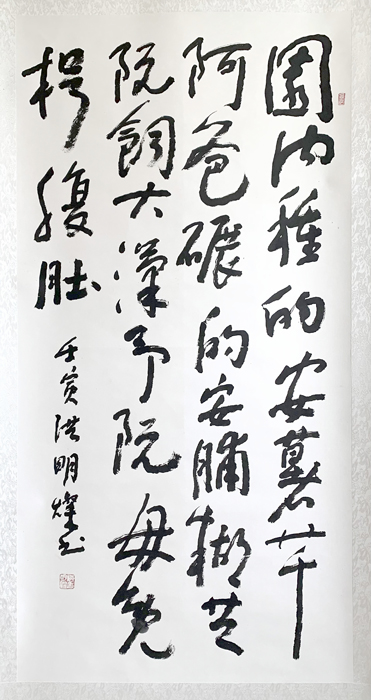 園內種的安薯芋
阿爸碾的安脯糊共
阮飼大漢予阮毋免
枵腹肚
壬寅洪明燦书